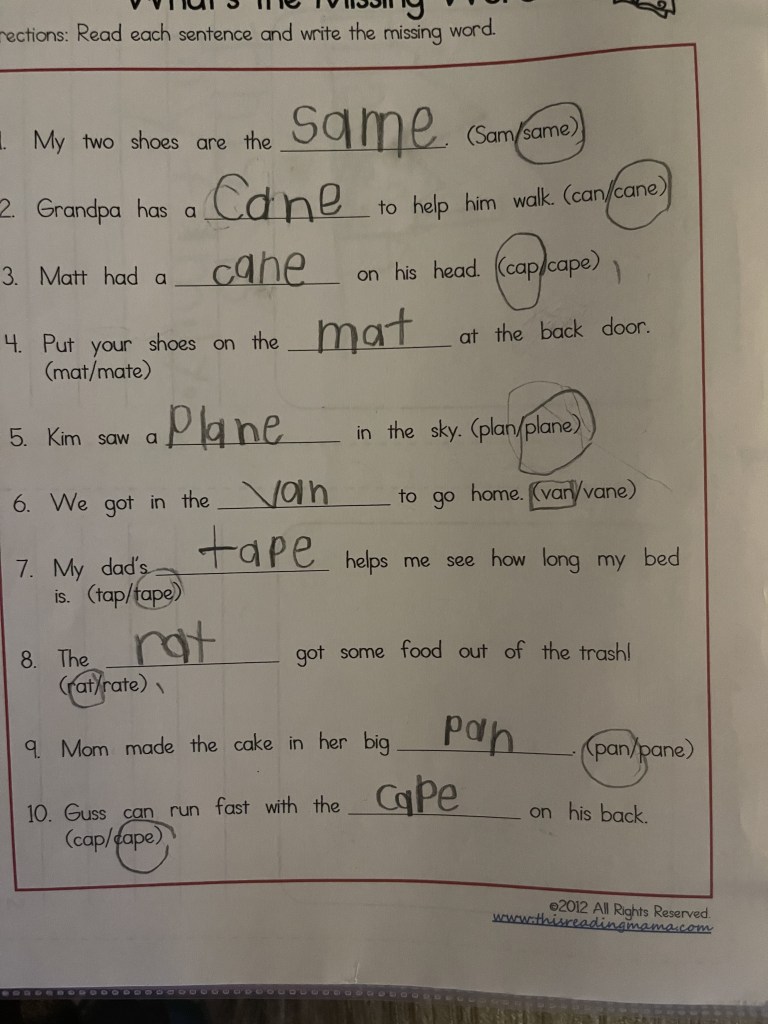 What's the Missing Word
rections: Read each sentence and write the missing word.
1. My two shoes are the same. (Sam/same)
2. Grandpa has a Cane to help him walk. (can/cane)
3. Matt had a cane on his head. (cap/cape)
4. Put your shoes on the mat at the back door.
(mat/mate)
5. Kim saw a Plane in the sky. (plan/plane)
6. We got in the van to go home. (van/vane)
7. My dad's tape helps me see how long my bed
is. (tap/tape)
8. The rat got some food out of the trash!
(rat/rate)
9. Mom made the cake in her big pan. (pan/pane)
10. Guss can run fast with the cape on his back.
(cap/cape)
©2012 All Rights Reserved.
www.thisreadingmama.com